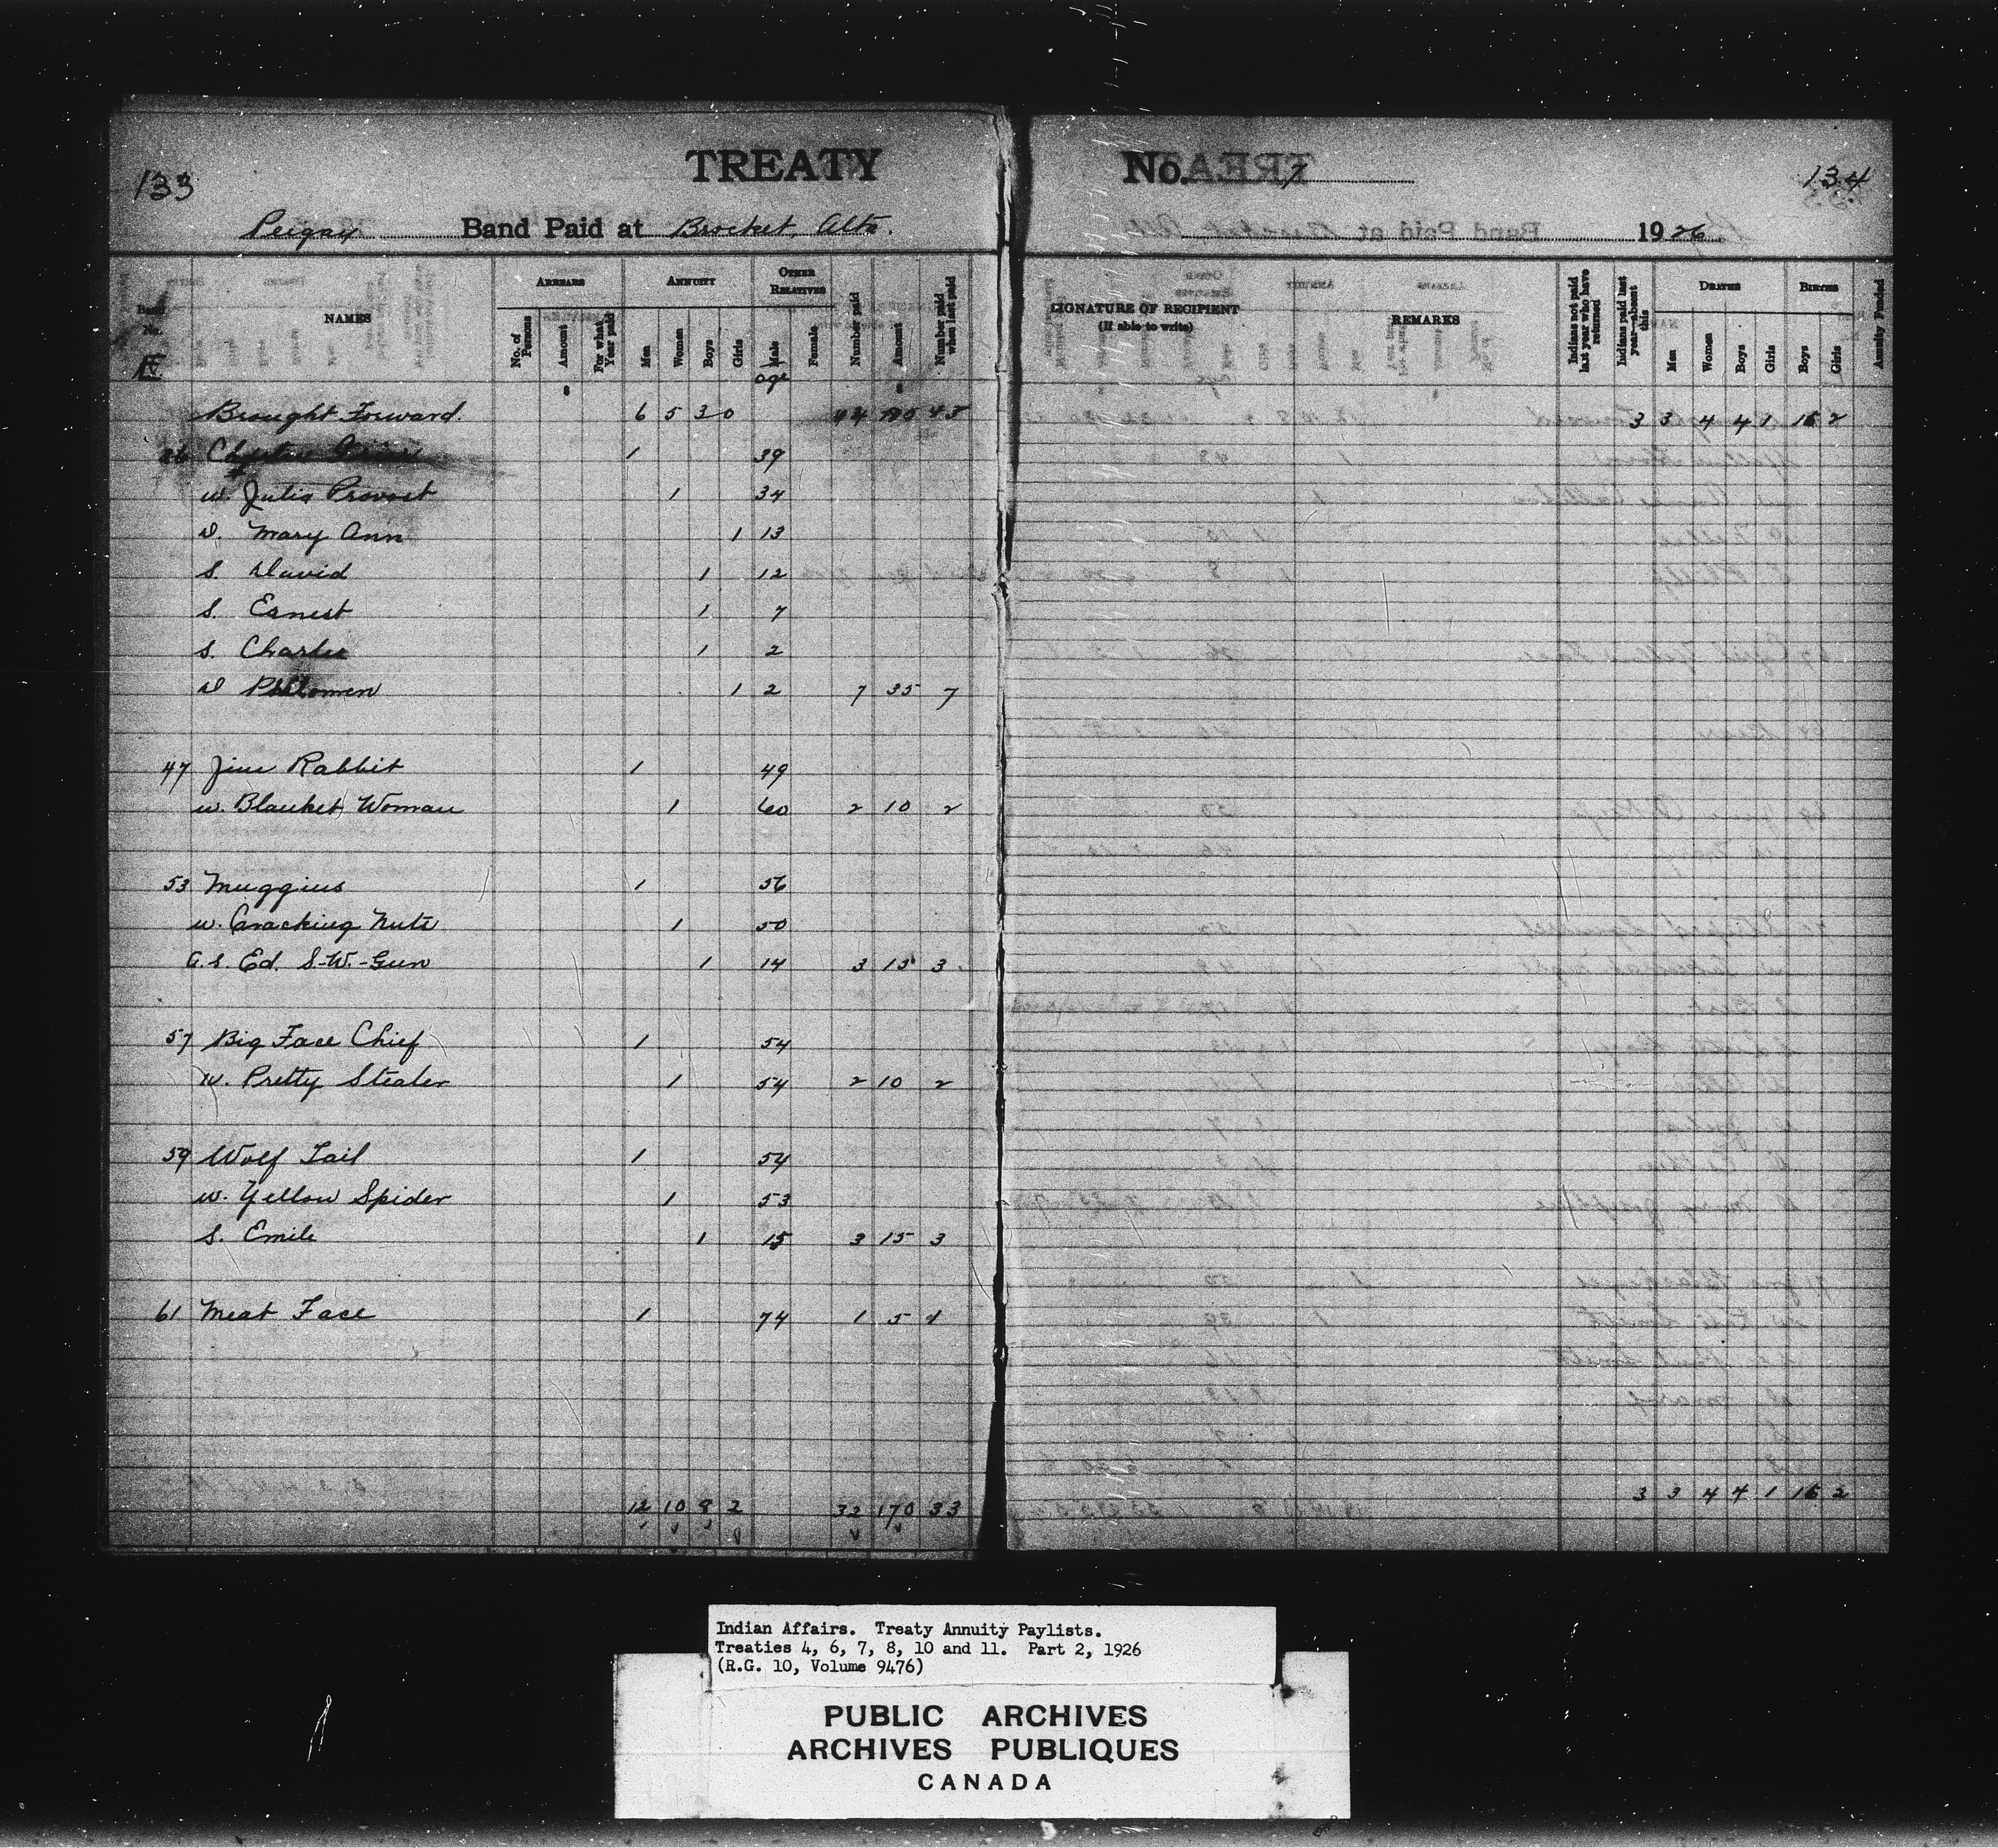 133
TREATY No. 7
134
Peigan Band Paid at Brocket, Alta. 1926
Band No.
NAMES
ARREARS
No. of Persons
Amount
For what Year paid
ANNUITY
Men
Women
Boys
Girls
OTHER RELATIVES
Male
Female
age
Number paid
Amount
Number paid when last paid
SIGNATURE OF RECIPIENT
(If able to write)
REMARKS
Indians not paid last year who have returned
Indians paid last year—absent this
DEATHS
Men
Women
Boys
Girls
BIRTHS
Boys
Girls
Annuity Funded
E
Brought Forward. 6 5 3 0 3 3 4 4 1 16 2
1 39
w. Julia Provost 1 34
D. Mary Ann 1 13
S. David 1 12
S. Earnest 1 7
S. Charles 1 2
D Philomen 1 2 7 35 7
47 Jim Rabbit 1 49
w. Blanket Woman 1 60 2 10 2
53 Muggins 1 56
w. Cracking Nuts 1 50
G.S. Ed. S-W.-Gun 1 14 3 15 3
57 Big Face Chief 1 54
w. Pretty Stealer 1 54 2 10 2
59 Wolf Tail 1 54
w. Yellow Spider 1 53
S. Emile 1 15 3 15 3
61 Meat Face 1 74 1 5 1
12 10 8 2 32 170 33 3 3 4 4 1 16 2
Indian Affairs. Treaty Annuity Paylists.
Treaties 4, 6, 7, 8, 10 and 11. Part 2, 1926
(R.G. 10, Volume 9476)
PUBLIC ARCHIVES
ARCHIVES PUBLIQUES
CANADA